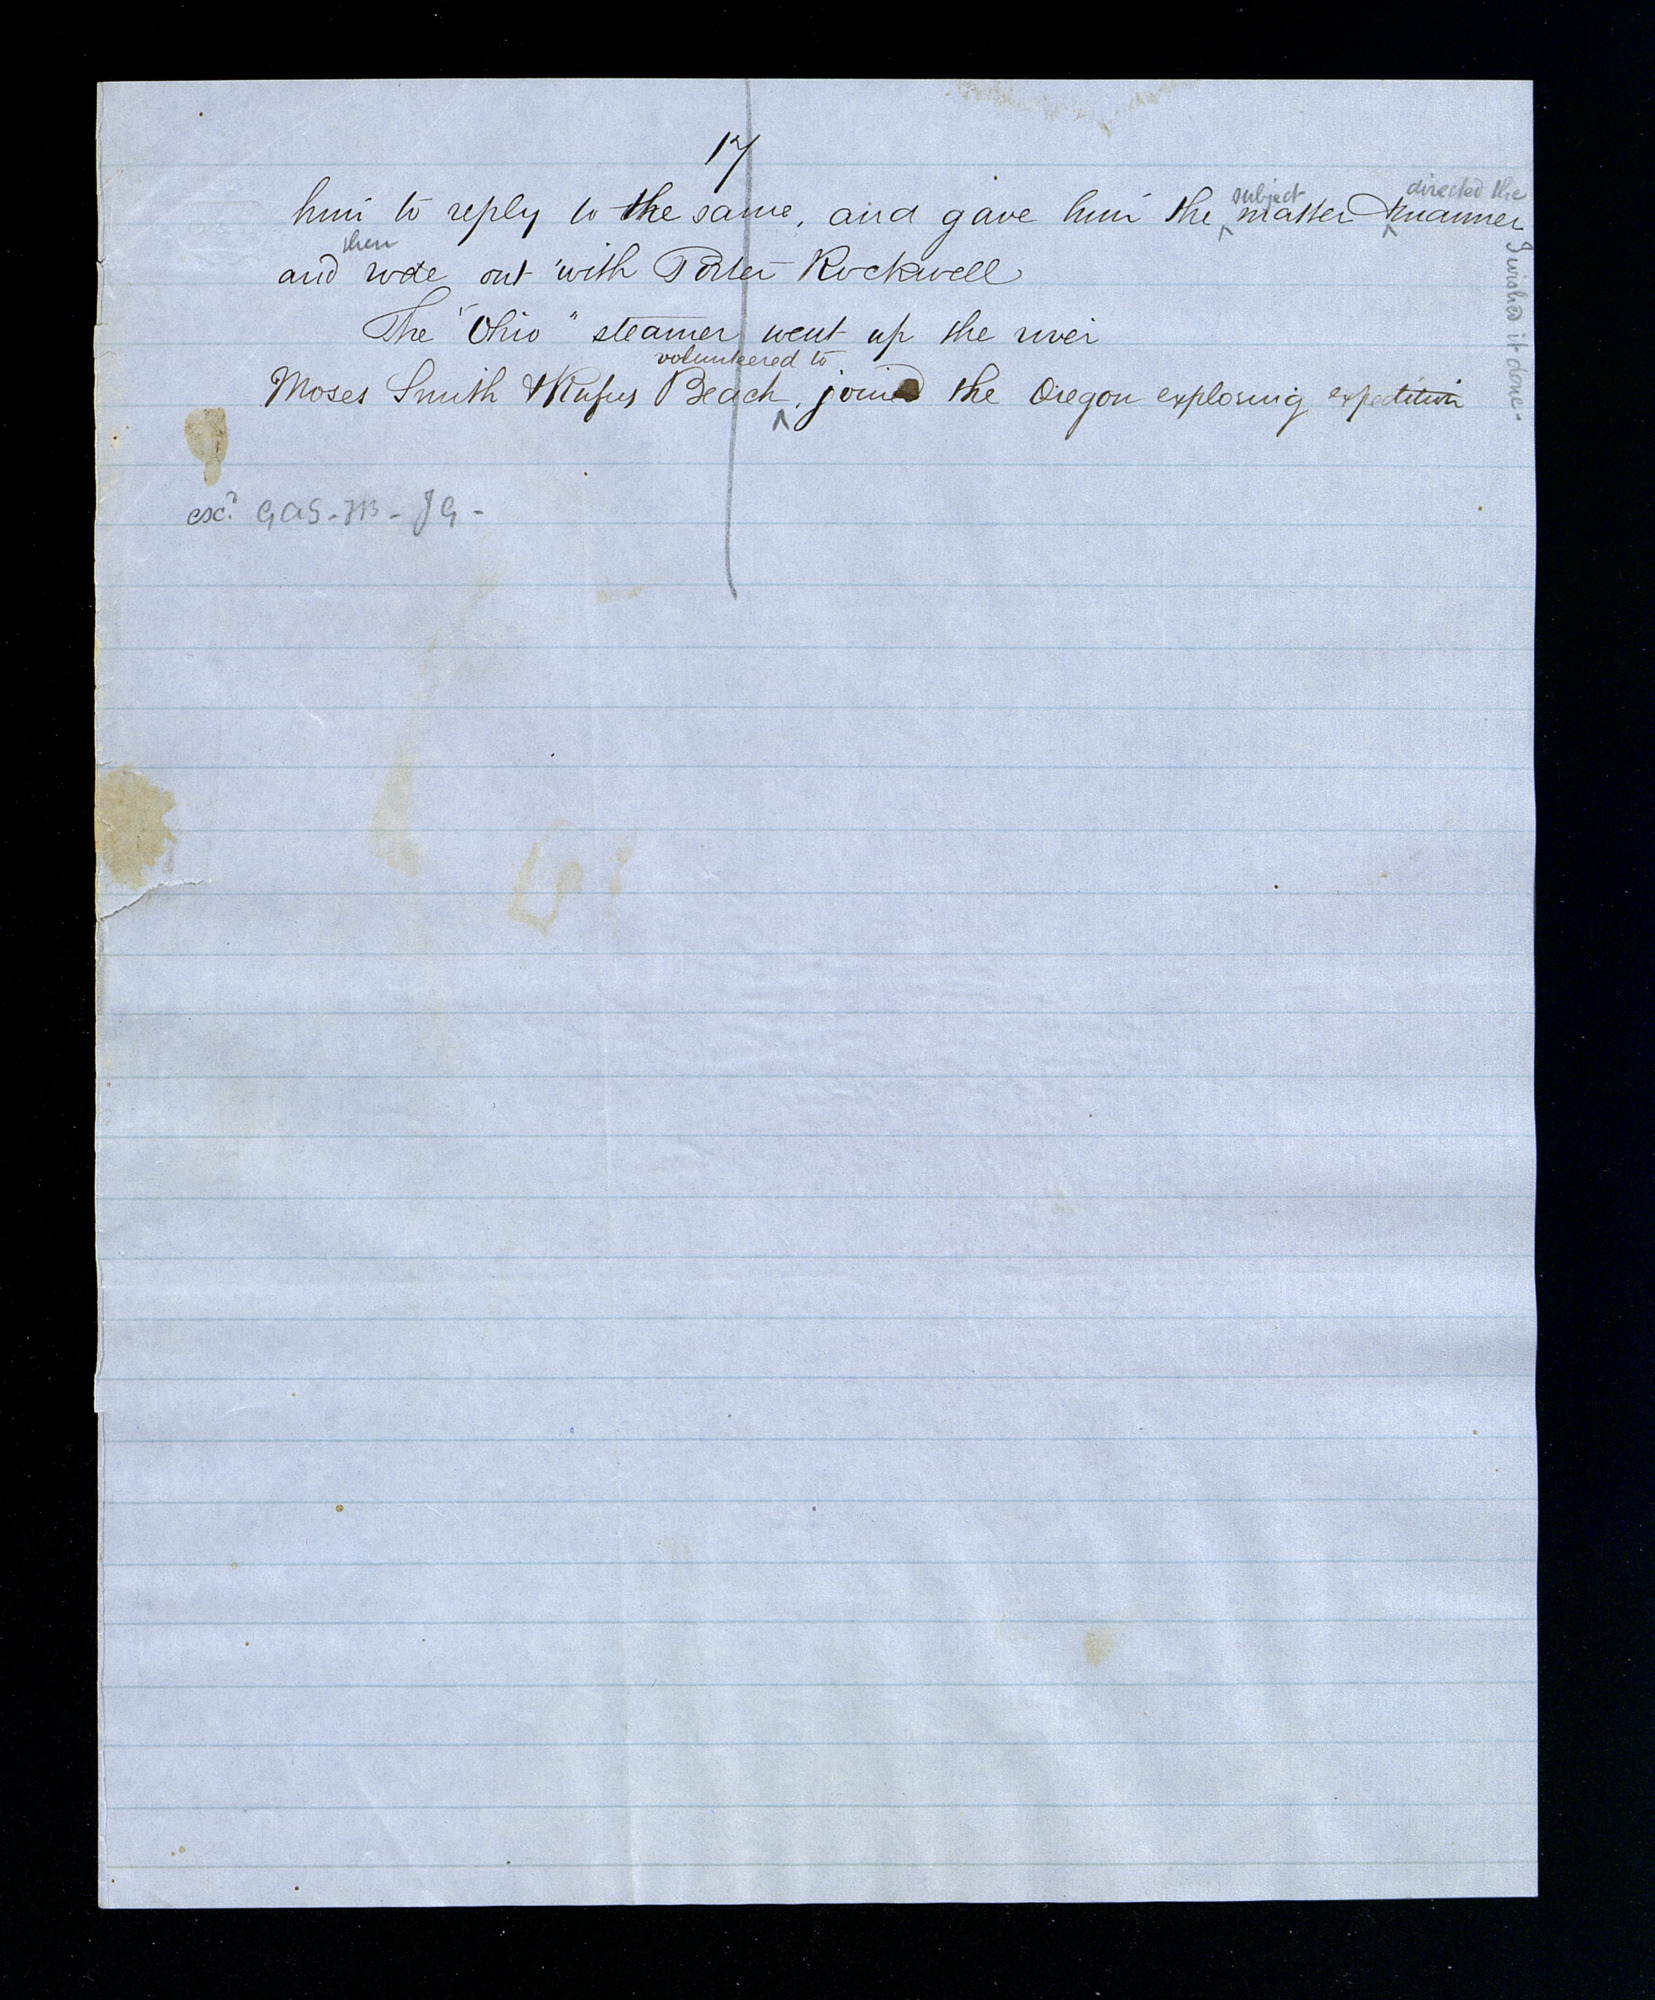 17
subject directed the
him to reply to the same, and gave him the ^ matter & ^ manner
I wished it done.
then
and rode out with Porter Rockwell
The "Ohio" steamer went up the river
volunteered to
Moses Smith & Rufus Beach ^ joined the Oregon exploring expedition
exd. GAS - JB - JG -